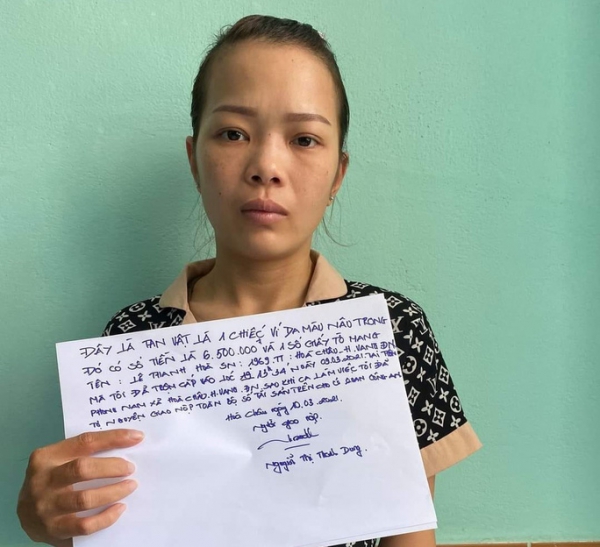 ĐÂY LÀ TAN VẬT LÀ 1 CHIẾC VÍ DA MÀU NÂU TRONG
ĐÓ CÓ SỐ TIỀN LÀ 6.500.000 VÀ 1 SỐ GIẤY TỜ MANG
TÊN : LÊ THANH HOÀ SN : 1969. TT : HOÀ CHÂU. H. VANG. ĐN
MÀ TÔI ĐÃ TRỘM CẤP VÀO LÚC 13 34, NGÀY 09.03.2021 TẠI
PHONG NAM XÃ HOÀ CHÂU. H. VANG. ĐN. SAO KHI CA LÀM VIỆC TÔI ĐÃ
TỰ NGUYỆN GIAO NỘP TOÀN BỘ SỐ TÀI SẢN TRÊN CHO CƠ QUAN CÔNG AN
Hoà Châu ngày 10.03.2021.
Người giao nộp.
Nguyễn Thị Thanh Dong.